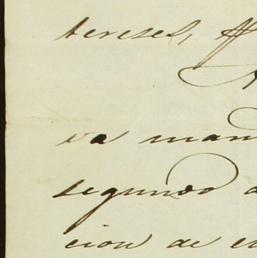 tereses,
va man
segundo
cion de